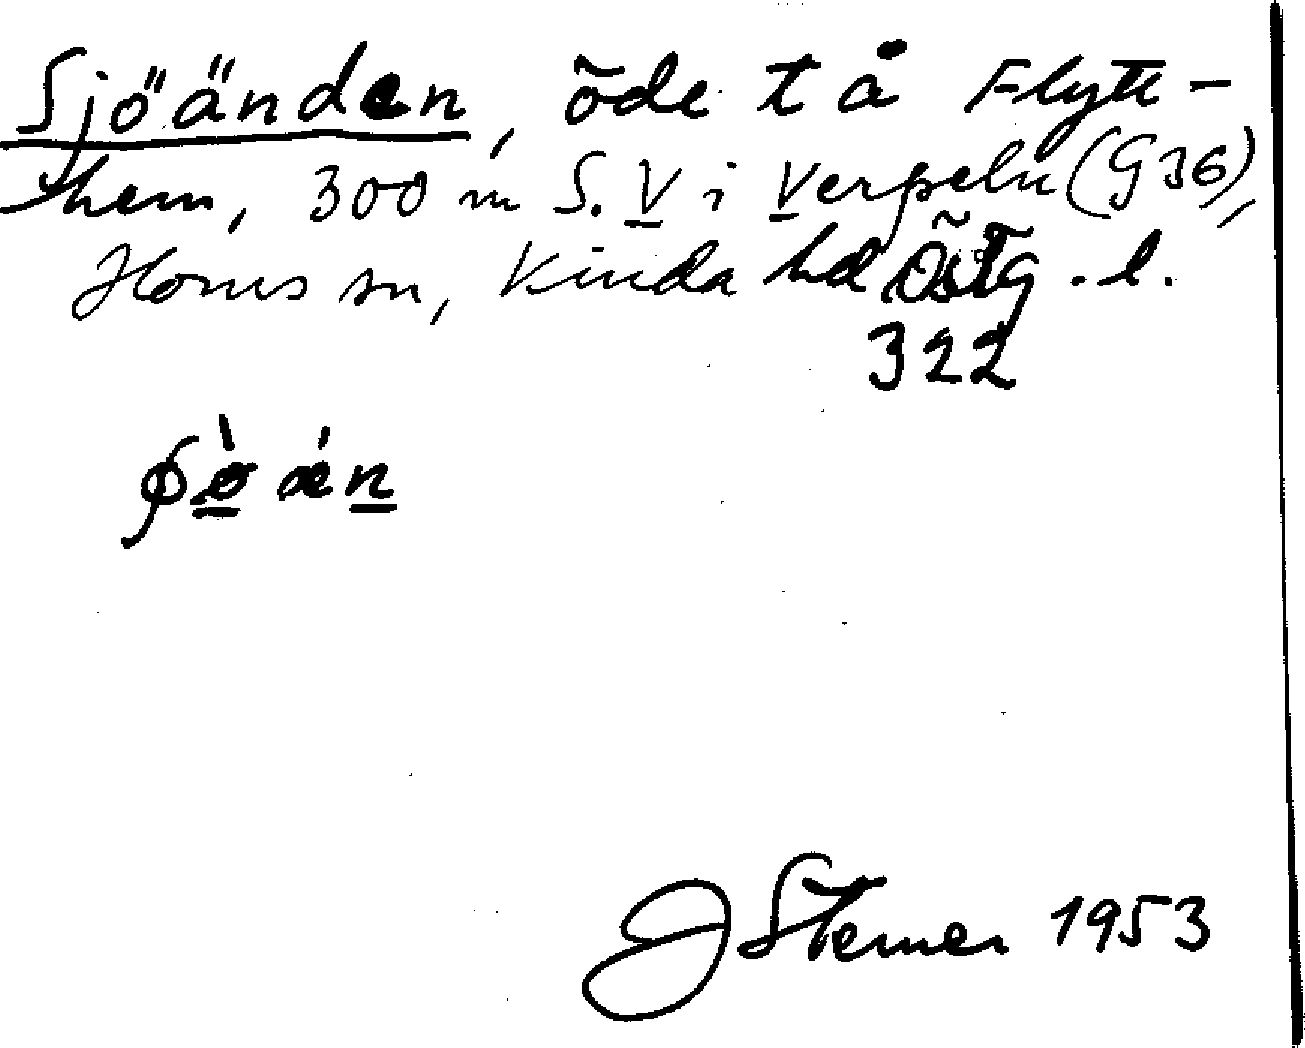 Sjöänden, öde t å Flytt-
hem, 300 m S. V i Verpeln (G 36),
Horns sn, Kinda hd Östg. l.
322
J Sterner 1953